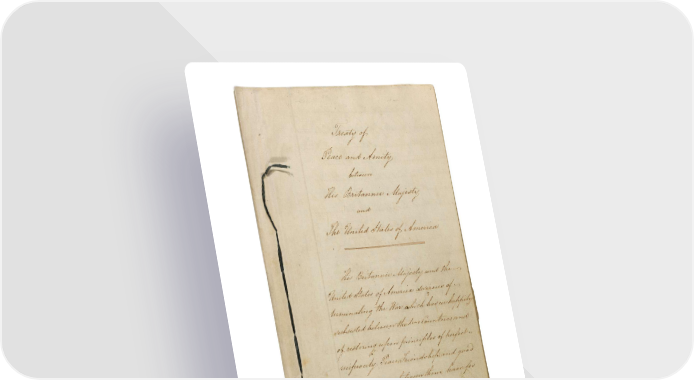 Treaty of
Peace and Amity
between
His Britannic Majesty
and
The United States of America
His Britannic Majesty and the
United States of America desirous of
terminating the War which has unhappily
subsisted between the two Countries and
of restoring upon principles of perfect
reciprocity, Peace, Friendship, and good